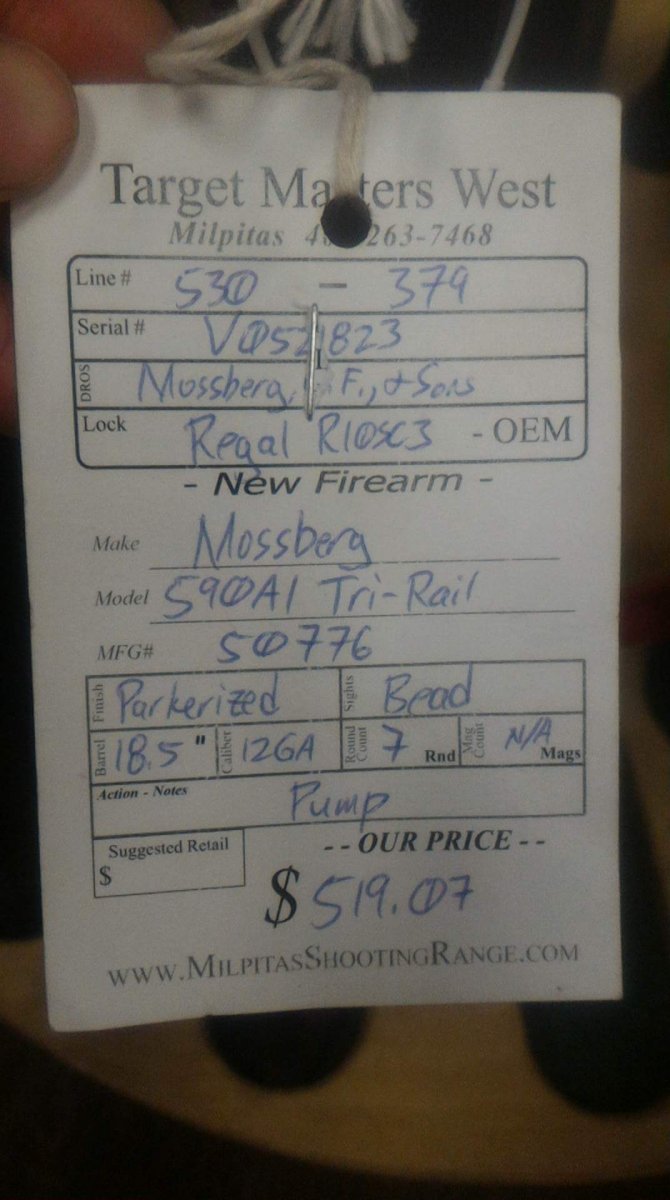 Target Masters West
Milpitas 263-7468
Line # 530 - 379
Serial #
DROS Mossberg, F., & Sons
Lock Regal R10SC3 - OEM
- New Firearm -
Make Mossberg
Model 590A1 Tri-Rail
MFG# 50776
Finish Parkerized Sights Bead
Barrel 18.5" Caliber 12GA Round Count 7 Rnd Mag Count N/A Mags
Action - Notes
Pump
Suggested Retail -- OUR PRICE --
$
$519.07
www.MilpitasShootingRange.com